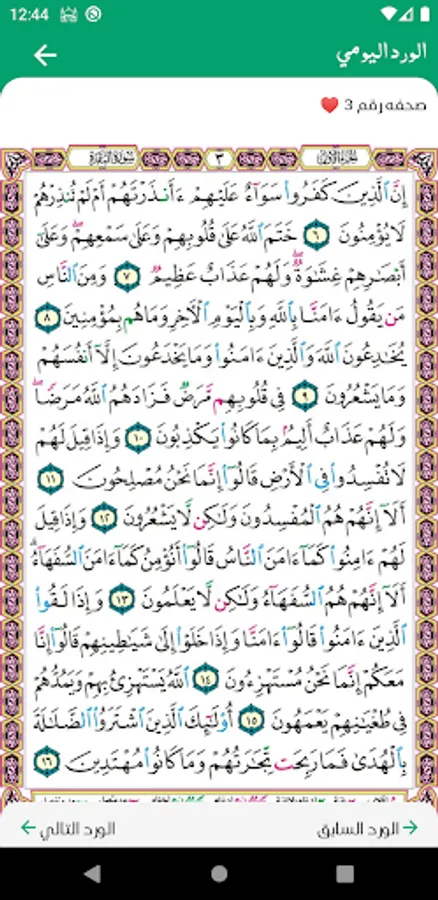 12:44
الورد اليومي
صحفه رقم 3
الجزء الأول ٣ سورة البقرة
إِنَّ ٱلَّذِينَ كَفَرُوا۟ سَوَآءٌ عَلَيْهِمْ ءَأَنذَرْتَهُمْ أَمْ لَمْ تُنذِرْهُمْ
لَا يُؤْمِنُونَ ٦ خَتَمَ ٱللَّهُ عَلَىٰ قُلُوبِهِمْ وَعَلَىٰ سَمْعِهِمْ ۖ وَعَلَىٰٓ
أَبْصَٰرِهِمْ غِشَٰوَةٌ ۖ وَلَهُمْ عَذَابٌ عَظِيمٌ ٧ وَمِنَ ٱلنَّاسِ
مَن يَقُولُ ءَامَنَّا بِٱللَّهِ وَبِٱلْيَوْمِ ٱلْءَاخِرِ وَمَا هُم بِمُؤْمِنِينَ ٨
يُخَٰدِعُونَ ٱللَّهَ وَٱلَّذِينَ ءَامَنُوا۟ وَمَا يَخْدَعُونَ إِلَّآ أَنفُسَهُمْ
وَمَا يَشْعُرُونَ ٩ فِى قُلُوبِهِم مَّرَضٌ فَزَادَهُمُ ٱللَّهُ مَرَضًا ۖ
وَلَهُمْ عَذَابٌ أَلِيمٌۢ بِمَا كَانُوا۟ يَكْذِبُونَ ١٠ وَإِذَا قِيلَ لَهُمْ
لَا تُفْسِدُوا۟ فِى ٱلْأَرْضِ قَالُوٓا۟ إِنَّمَا نَحْنُ مُصْلِحُونَ ١١
أَلَآ إِنَّهُمْ هُمُ ٱلْمُفْسِدُونَ وَلَٰكِن لَّا يَشْعُرُونَ ١٢ وَإِذَا قِيلَ
لَهُمْ ءَامِنُوا۟ كَمَآ ءَامَنَ ٱلنَّاسُ قَالُوٓا۟ أَنُؤْمِنُ كَمَآ ءَامَنَ ٱلسُّفَهَآءُ ۗ
أَلَآ إِنَّهُمْ هُمُ ٱلسُّفَهَآءُ وَلَٰكِن لَّا يَعْلَمُونَ ١٣ وَإِذَا لَقُوا۟
ٱلَّذِينَ ءَامَنُوا۟ قَالُوٓا۟ ءَامَنَّا وَإِذَا خَلَوْا۟ إِلَىٰ شَيَٰطِينِهِمْ قَالُوٓا۟ إِنَّا
مَعَكُمْ إِنَّمَا نَحْنُ مُسْتَهْزِءُونَ ١٤ ٱللَّهُ يَسْتَهْزِئُ بِهِمْ وَيَمُدُّهُمْ
فِى طُغْيَٰنِهِمْ يَعْمَهُونَ ١٥ أُو۟لَٰٓئِكَ ٱلَّذِينَ ٱشْتَرَوُا۟ ٱلضَّلَٰلَةَ
بِٱلْهُدَىٰ فَمَا رَبِحَت تِّجَٰرَتُهُمْ وَمَا كَانُوا۟ مُهْتَدِينَ ١٦
الورد السابق
الورد التالي